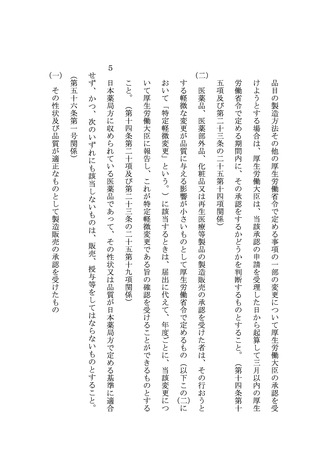 品目の製造方法その他の厚生労働省令で定める事項の一部の変更について厚生労働大臣の承認を受
けようとする場合は、厚生労働大臣は、当該承認の申請を受理した日から起算して三月以内の厚生
労働省令で定める期間内に、その承認をするかどうかを判断するものとすること。（第十四条第十
五項及び第二十三条の二十五第十四項関係）
(二)　医薬品、医薬部外品、化粧品又は再生医療等製品の製造販売の承認を受けた者は、その行おうと
する軽微な変更が品質に与える影響が小さいものとして厚生労働省令で定めるもの（以下この(二)に
おいて「特定軽微変更」という。）に該当するときは、届出に代えて、年度ごとに、当該変更につ
いて厚生労働大臣に報告し、これが特定軽微変更である旨の確認を受けることができるものとする
こと。（第十四条第二十項及び第二十三条の二十五第十九項関係）
5　日本薬局方に収められている医薬品であって、その性状又は品質が日本薬局方で定める基準に適合
せず、かつ、次のいずれにも該当しないものは、販売、授与等をしてはならないものとすること。
（第五十六条第一号関係）
(一)　その性状及び品質が適正なものとして製造販売の承認を受けたもの